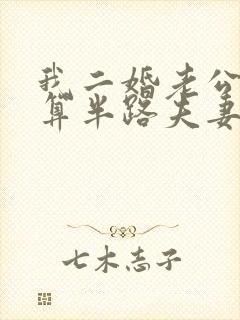 我二婚老公
算半路夫妻
七木志子